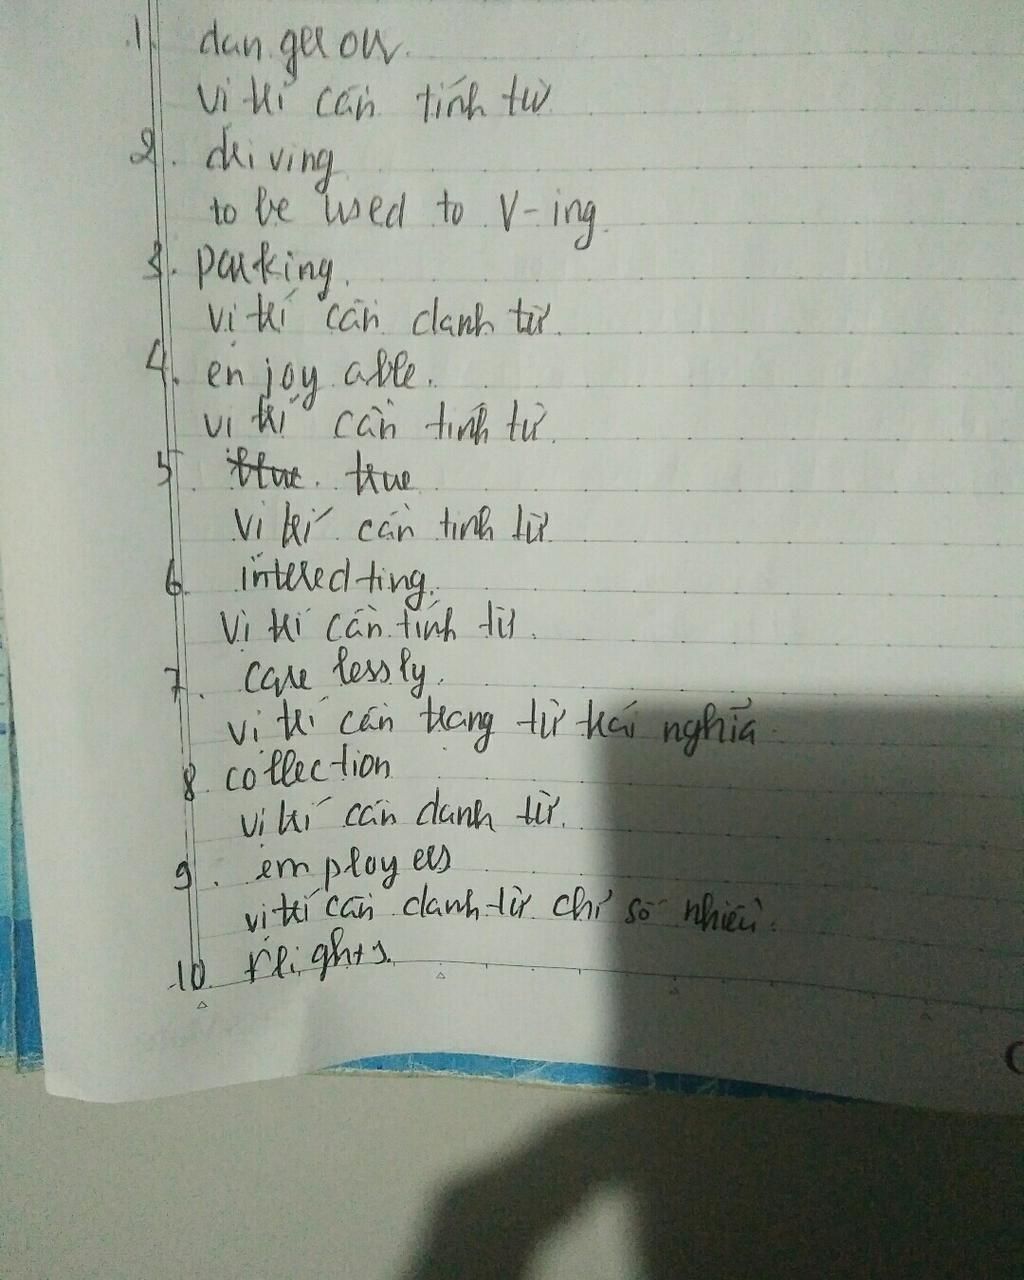 1. dangerous.
vị trí cần tính từ
2. driving
to be used to V-ing.
3. parking.
vị trí cần danh từ.
4. enjoyable.
vị trí cần tính từ.
5. true
vị trí cần tính từ.
6. interedting.
vị trí cần tính từ.
7. carelessly.
vị trí cần trạng từ trái nghĩa.
8. collection
vị trí cần danh từ.
9. employees
vị trí cần danh từ chỉ số nhiều.
10. flights.